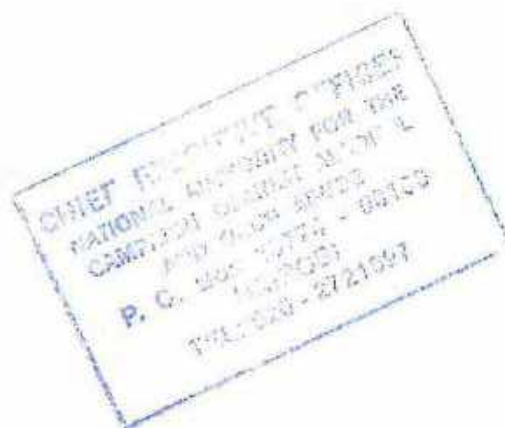 CHIEF EXECUTIVE OFFICER
NATIONAL AUTHORITY FOR THE
CAMPAIGN AGAINST
AND DRUG ABUSE
P. O. BOX - 00100
NAIROBI
TEL: 020 - 2721997